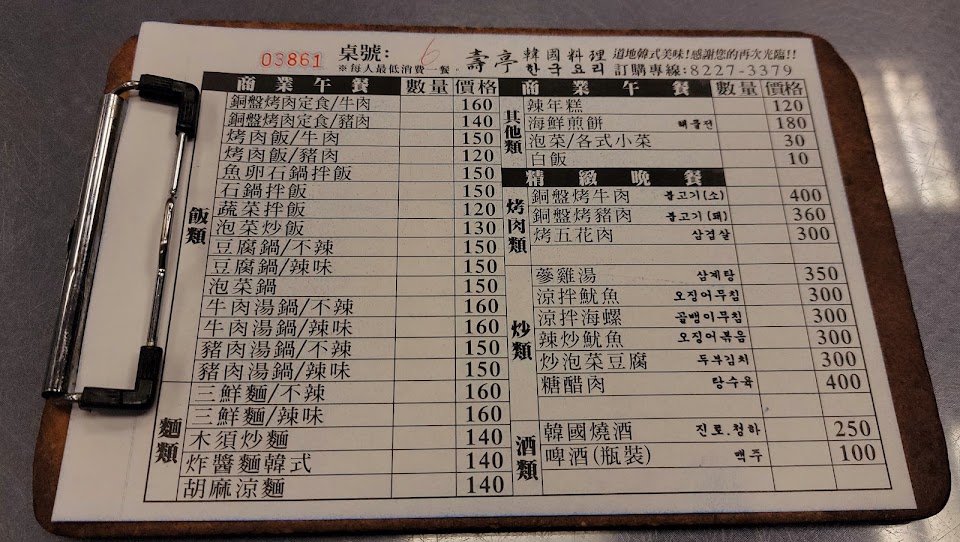 03861 桌號: 6 壽亭 韓國料理 한국요리
※每人最低消費一餐.
道地韓式美味!感謝您的再次光臨!!
訂購專線:8227-3379
商業午餐 數量 價格
飯類
銅盤烤肉定食/牛肉 160
銅盤烤肉定食/豬肉 140
烤肉飯/牛肉 150
烤肉飯/豬肉 120
魚卵石鍋拌飯 150
石鍋拌飯 150
蔬菜拌飯 120
泡菜炒飯 130
豆腐鍋/不辣 150
豆腐鍋/辣味 150
泡菜鍋 150
牛肉湯鍋/不辣 160
牛肉湯鍋/辣味 160
豬肉湯鍋/不辣 150
豬肉湯鍋/辣味 150
麵類
三鮮麵/不辣 160
三鮮麵/辣味 160
木須炒麵 140
炸醬麵韓式 140
胡麻涼麵 140
商業午餐 數量 價格
其他類
辣年糕 120
海鮮煎餅 해물전 180
泡菜/各式小菜 30
白飯 10
精緻晚餐
烤肉類
銅盤烤牛肉 불고기(소) 400
銅盤烤豬肉 불고기(돼) 360
烤五花肉 삼겹살 300
炒類
蔘雞湯 삼계탕 350
涼拌魷魚 오징어무침 300
涼拌海螺 골뱅이무침 300
辣炒魷魚 오징어볶음 300
炒泡菜豆腐 두부김치 300
糖醋肉 탕수육 400
酒類
韓國燒酒 진로.청하 250
啤酒(瓶裝) 맥주 100